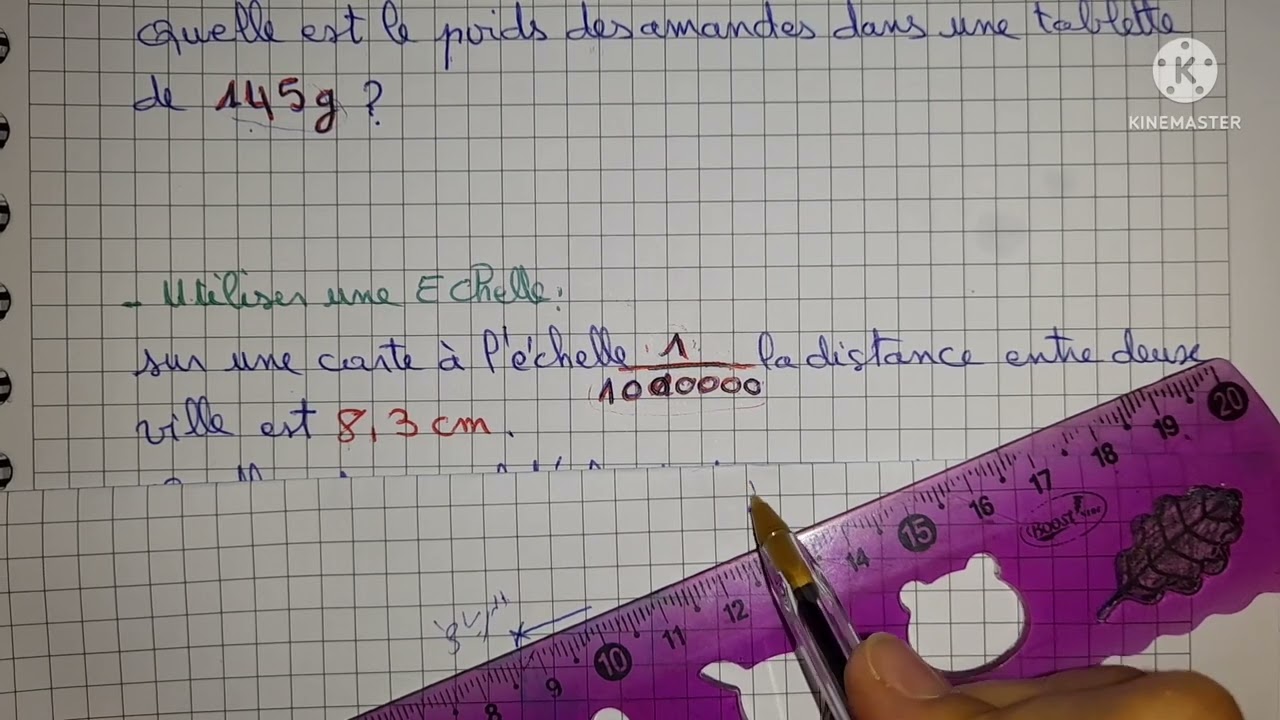 Quelle est le poids des amandes dans une tablette
de 145g ?
KINEMASTER
- Utiliser une Echelle :
sur une carte à l'échelle 1 la distance entre deux
1000000
ville est 8,3 cm.
20
19
18
17
16
15
14
12
11
10
9
8